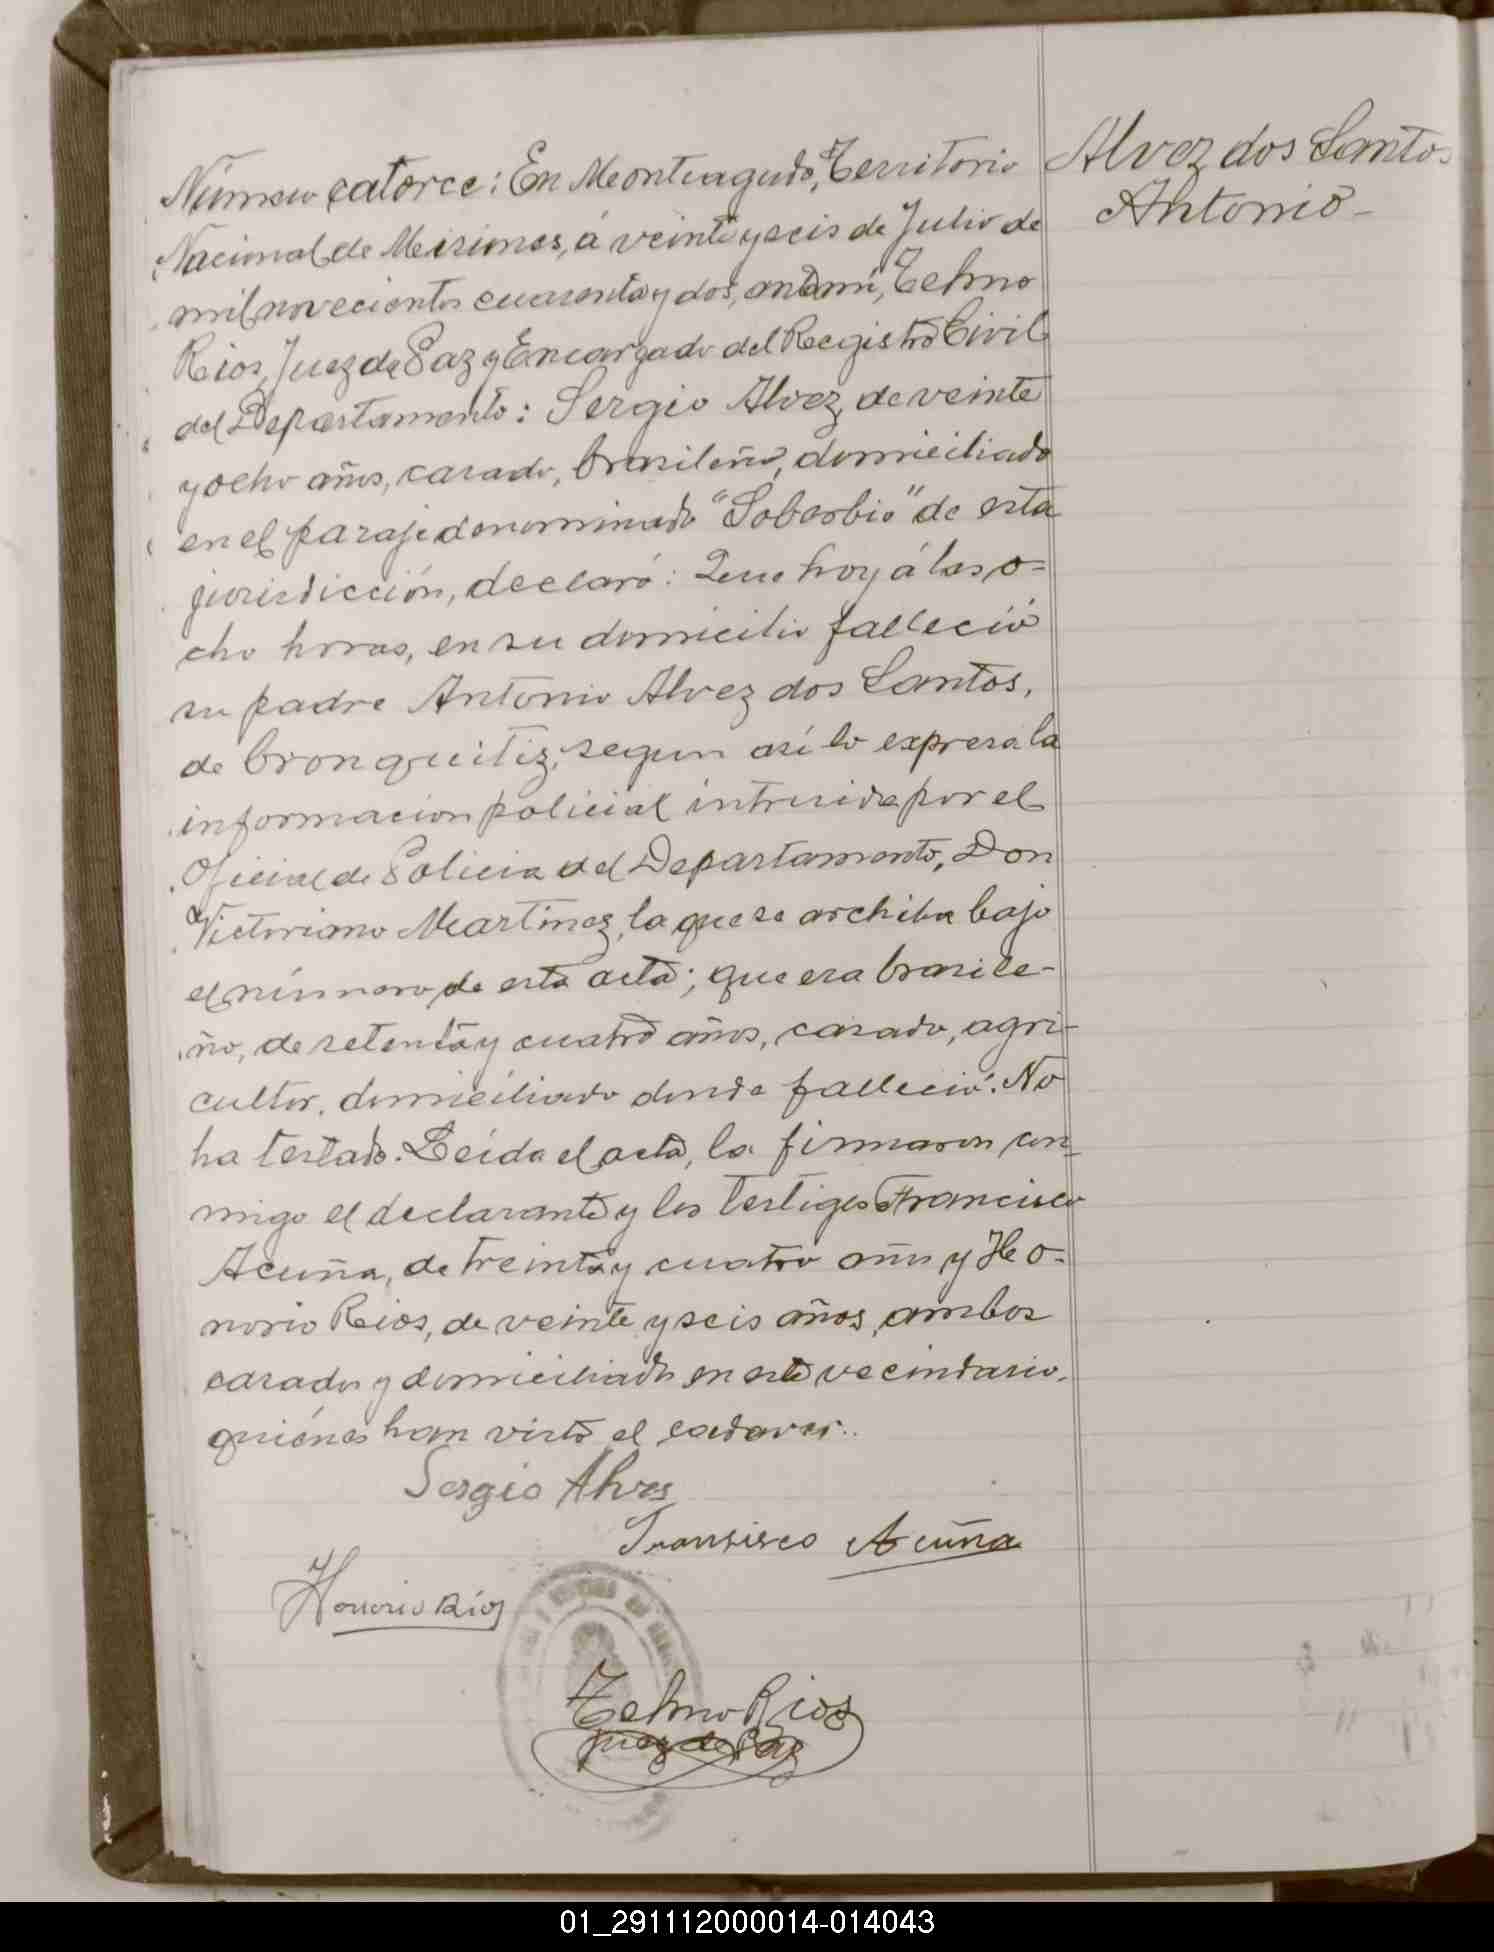 Alvez dos Santos
Antonio -
Número catorce: En Monteagudo, Territorio
Nacional de Misiones, á veinte y seis de Julio de
mil novecientos cuarenta y dos, ante mí, Telmo
Rios, Juez de Paz y Encargado del Registro Civil
del Departamento: Sergio Alvez, de veinte
y ocho años, casado, brasileño, domiciliado
en el paraje denominado "Soberbio" de esta
jurisdicción, declaró: Que hoy á las o-
cho horas, en su domicilio falleció
su padre Antonio Alvez dos Santos,
de bronquitiz, segun así lo expresa la
informacion policial intruida por el
Oficial de Policia del Departamento, Don
Victoriano Martinez, la que se archiba bajo
el número de esta acta; que era brasile-
ño, de setenta y cuatro años, casado, agri-
cultor, domiciliado donde falleció. No
ha testado. Leída el acta, la firmaron con-
migo el declarante y los testigos Francisco
Acuña, de treinta y cuatro años y Ho-
norio Rios, de veinte y seis años, ambos
casados y domiciliados en este vecindario,
quiénes han visto el cadaver..
Sergio Alves
Fransisco Acuña
Honorio Ríos
Telmo Rios
Juez de Paz
01_291112000014-014043